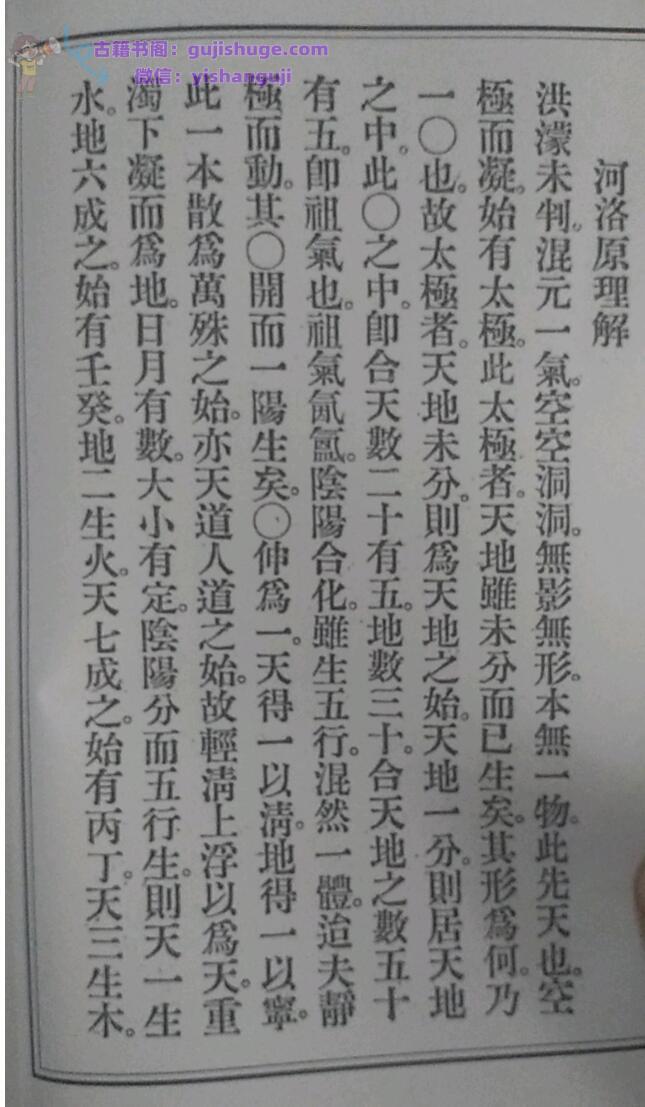 古籍书阁：gujishuge.com
微信：yishanguji
河洛原理解
洪濛未判。混元一氣。空空洞洞。無影無形。本無一物。此先天也。空
極而凝。始有太極。此太極者。天地雖未分而已生矣。其形爲何。乃
一〇也。故太極者。天地未分。則爲天地之始。天地一分。則居天地
之中。此〇之中。卽合天數二十有五。地數三十。合天地之數五十
有五。卽祖氣也。祖氣氤氳。陰陽合化。雖生五行。混然一體。迨夫靜
極而動。其〇開而一陽生矣。〇伸爲一。天得一以淸。地得一以寧。
此一本散爲萬殊之始。亦天道人道之始。故輕淸上浮以爲天。重
濁下凝而爲地。日月有數。大小有定。陰陽分而五行生。則天一生
水。地六成之。始有壬癸。地二生火。天七成之。始有丙丁。天三生木。